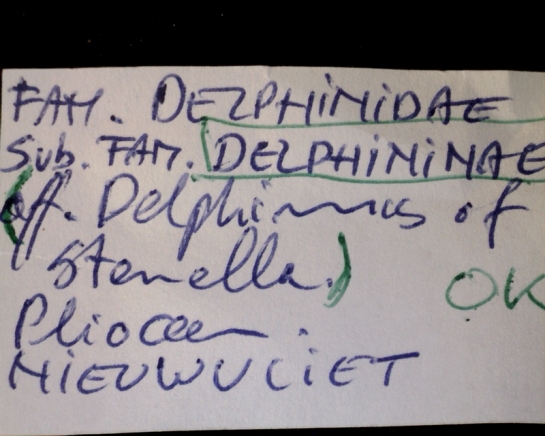 FAM. DELPHINIDAE
Sub. FAM. DELPHININAE
(aff. Delphinus of
Stenella.)
OK
Plioceen.
NIEUWVLIET